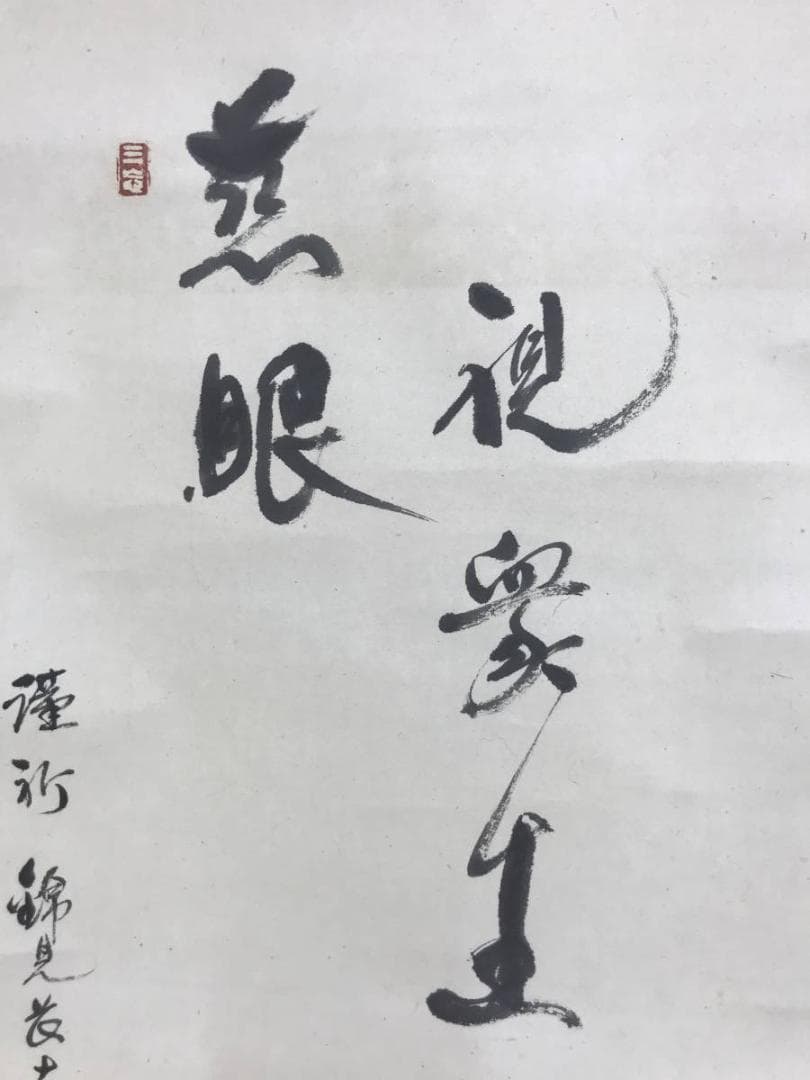 慈眼
視衆生
謹祈 錦見